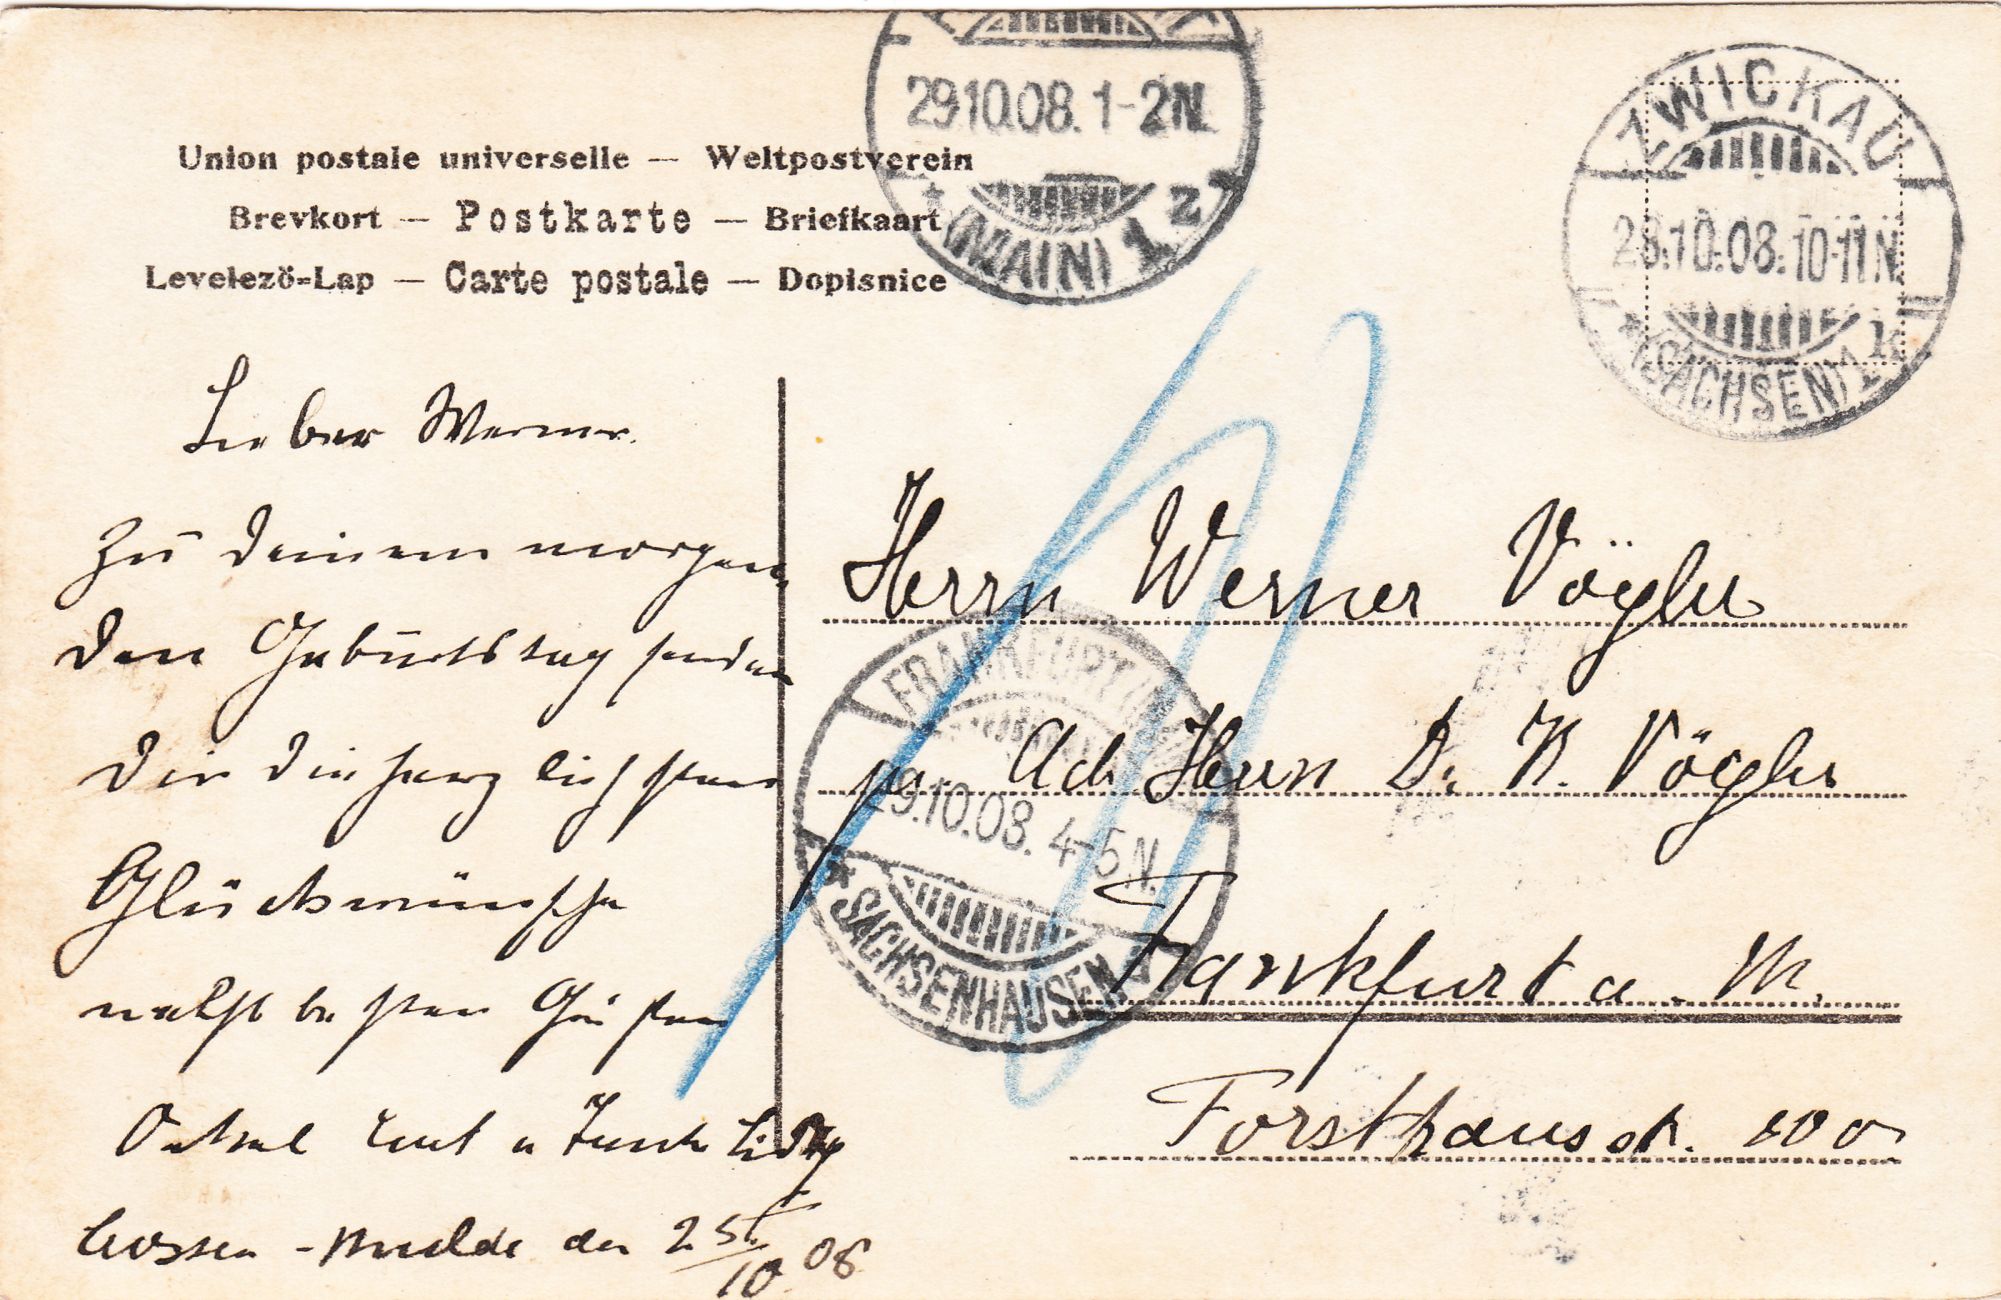 Union postale universelle — Weltpostverein
Brevkort — Postkarte — Briefkaart
Levelező-Lap — Carte postale — Dopisnice
29.10.08. 1-2N.
* (MAIN) 1 z
ZWICKAU
28.10.08. 10-11N.
* (SACHSEN) 1 k
Lieber Werner.
Zu Deinem morgen
den Geburtstag senden
Dir die herzlichsten
Glückwünsche
nebst besten Grüßen
Onkel Curt u Tante
Cossen-Mulde den 28/10 08
Herrn Werner Vögler
Adr Herrn Dr. K. Vögler
Frankfurt a. M.
Forsthausstr.
FRANKFURT (MAIN)
29.10.08. 4-5N.
* SACHSENHAUSEN